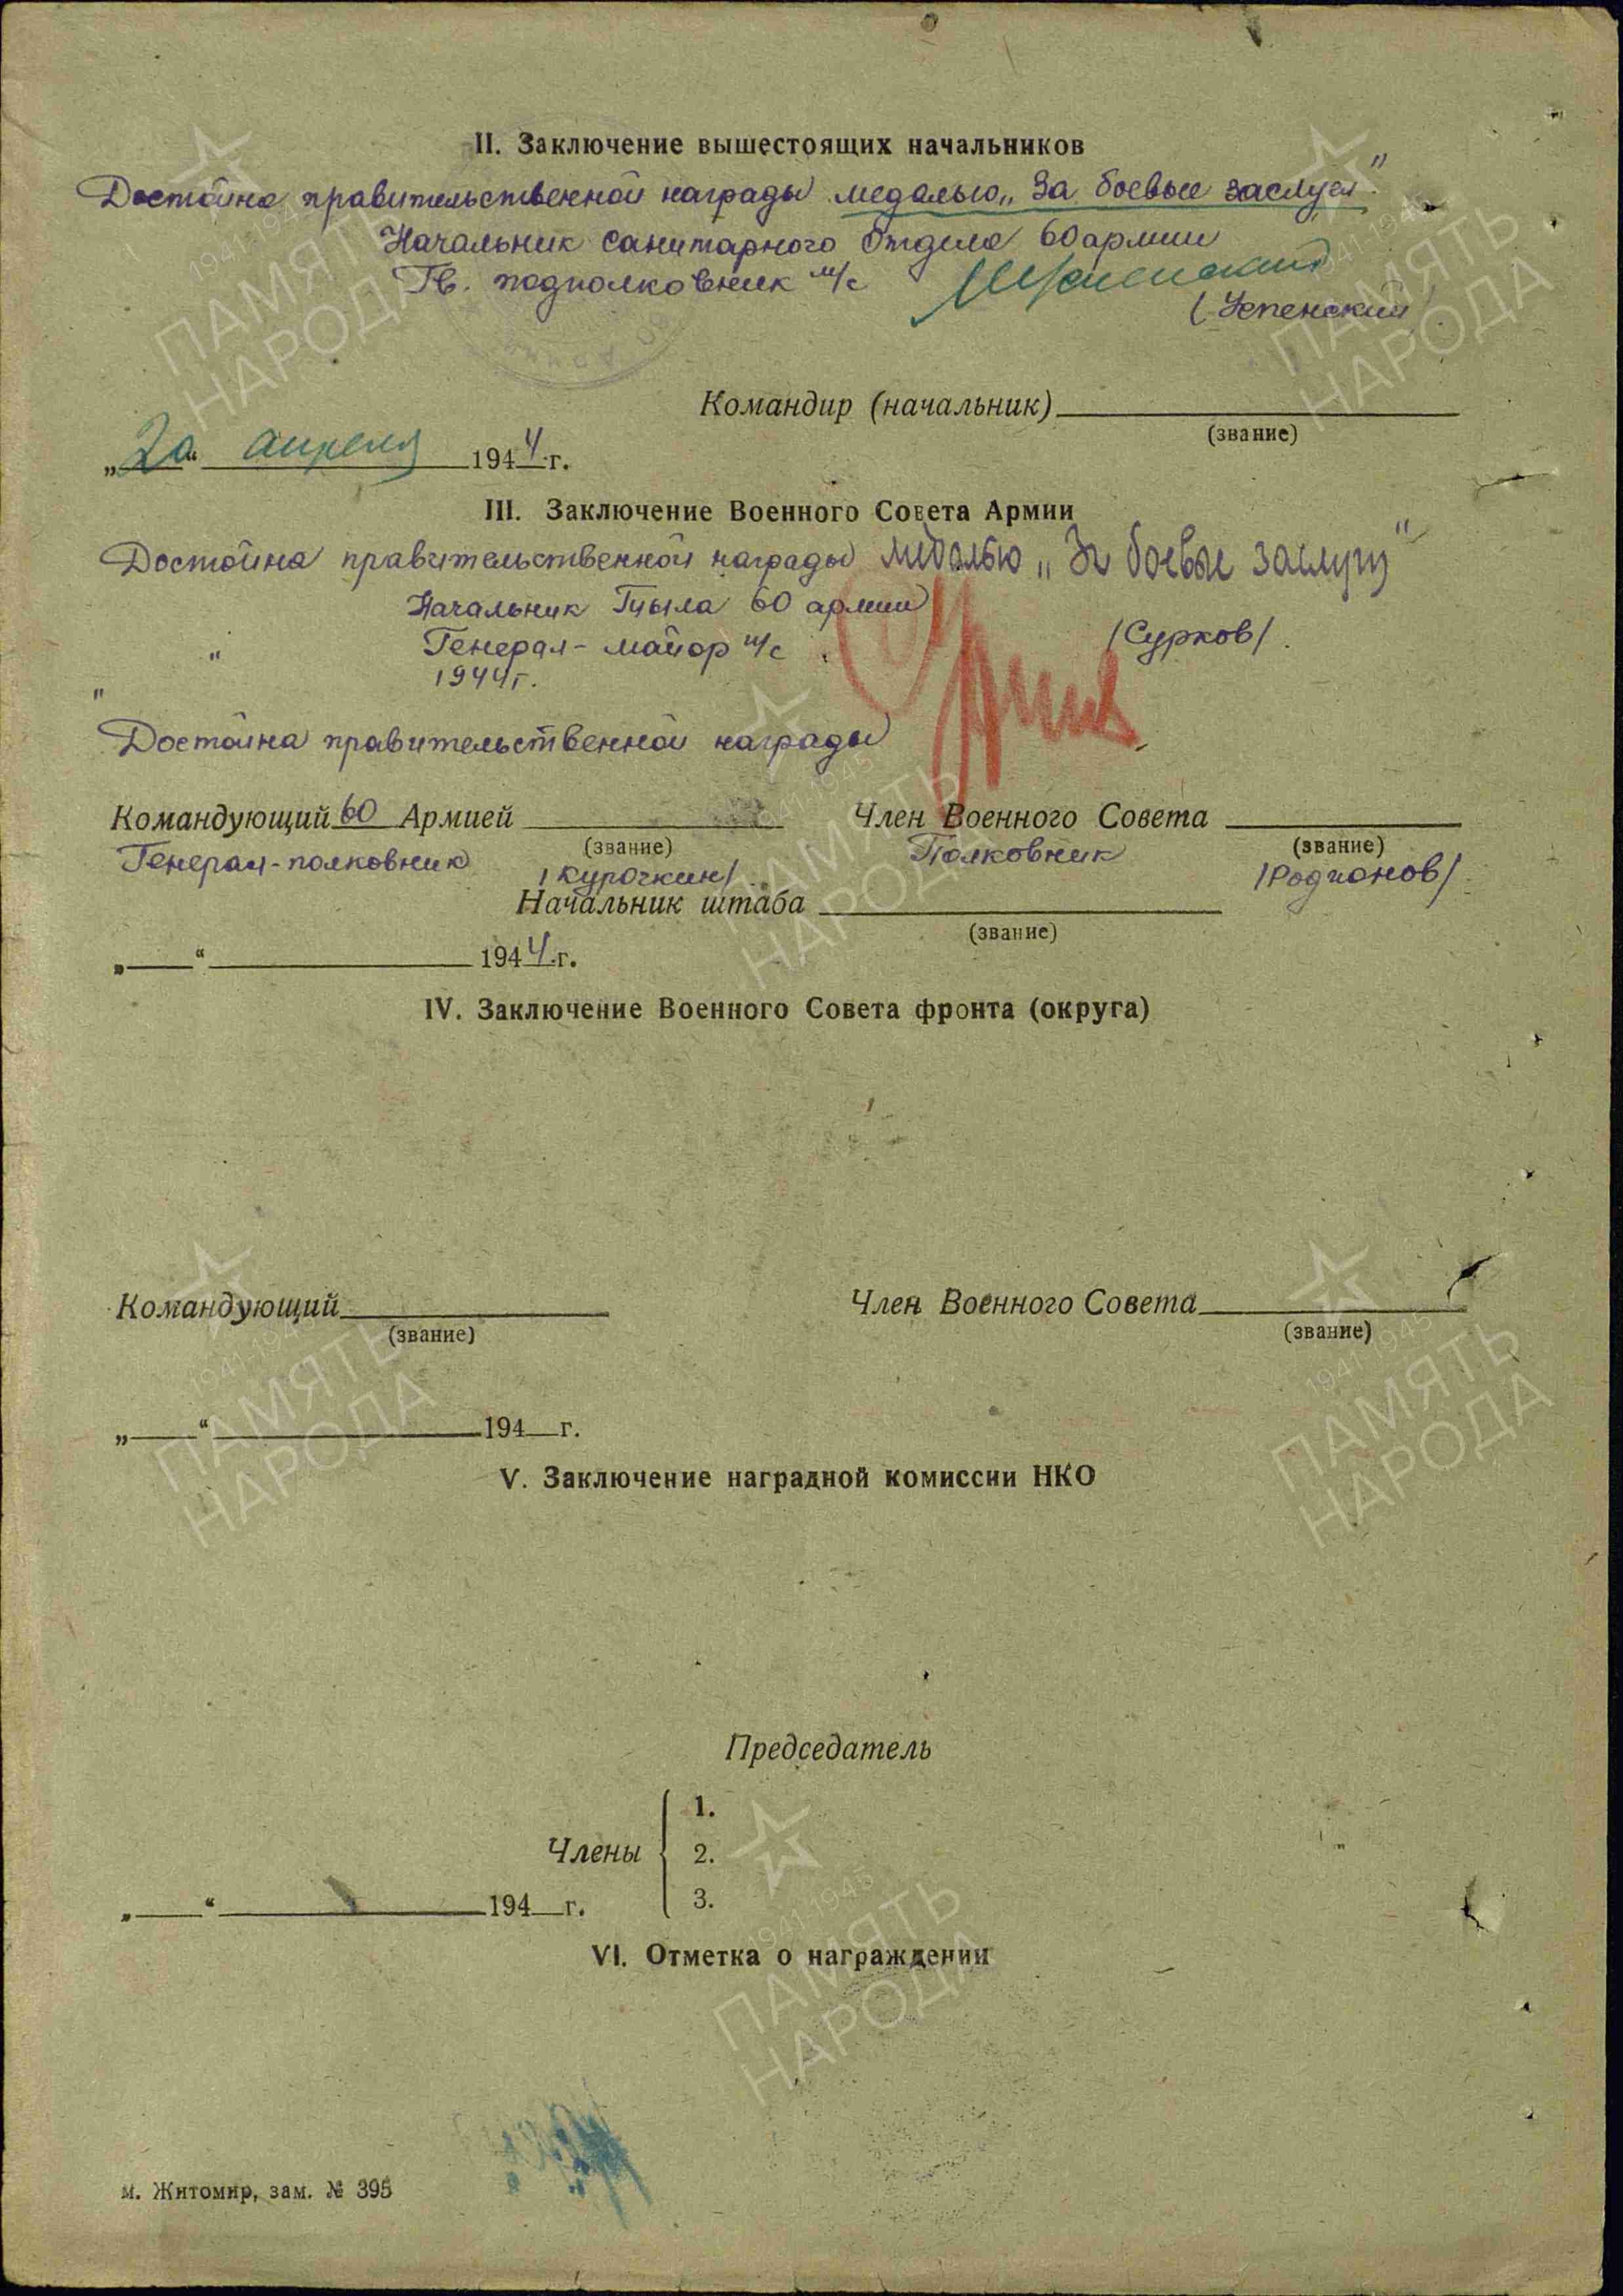 II. Заключение вышестоящих начальников
Достойна правительственной награды медалью „За боевые заслуги"
Начальник санитарного отдела 60 армии
Гв. подполковник м/с
(Успенский)
Командир (начальник)
(звание)
„20“ апреля 1944 г.
III. Заключение Военного Совета Армии
Достойна правительственной награды медалью „За боевые заслуги"
Начальник Тыла 60 армии
Генерал-майор и/с /Сурков/
1944 г.
Достойна правительственной награды
Командующий 60 Армией Член Военного Совета
(звание) (звание)
Генерал-полковник /Курочкин/ Полковник /Родионов/
Начальник штаба
(звание)
„ “ 1944 г.
IV. Заключение Военного Совета фронта (округа)
Командующий Член Военного Совета
(звание) (звание)
„ “ 194 г.
V. Заключение наградной комиссии НКО
Председатель
1.
Члены 2.
3.
„ “ 194 г.
VI. Отметка о награждении
м. Житомир, зам. № 395
1941-1945
ПАМЯТЬ
НАРОДА